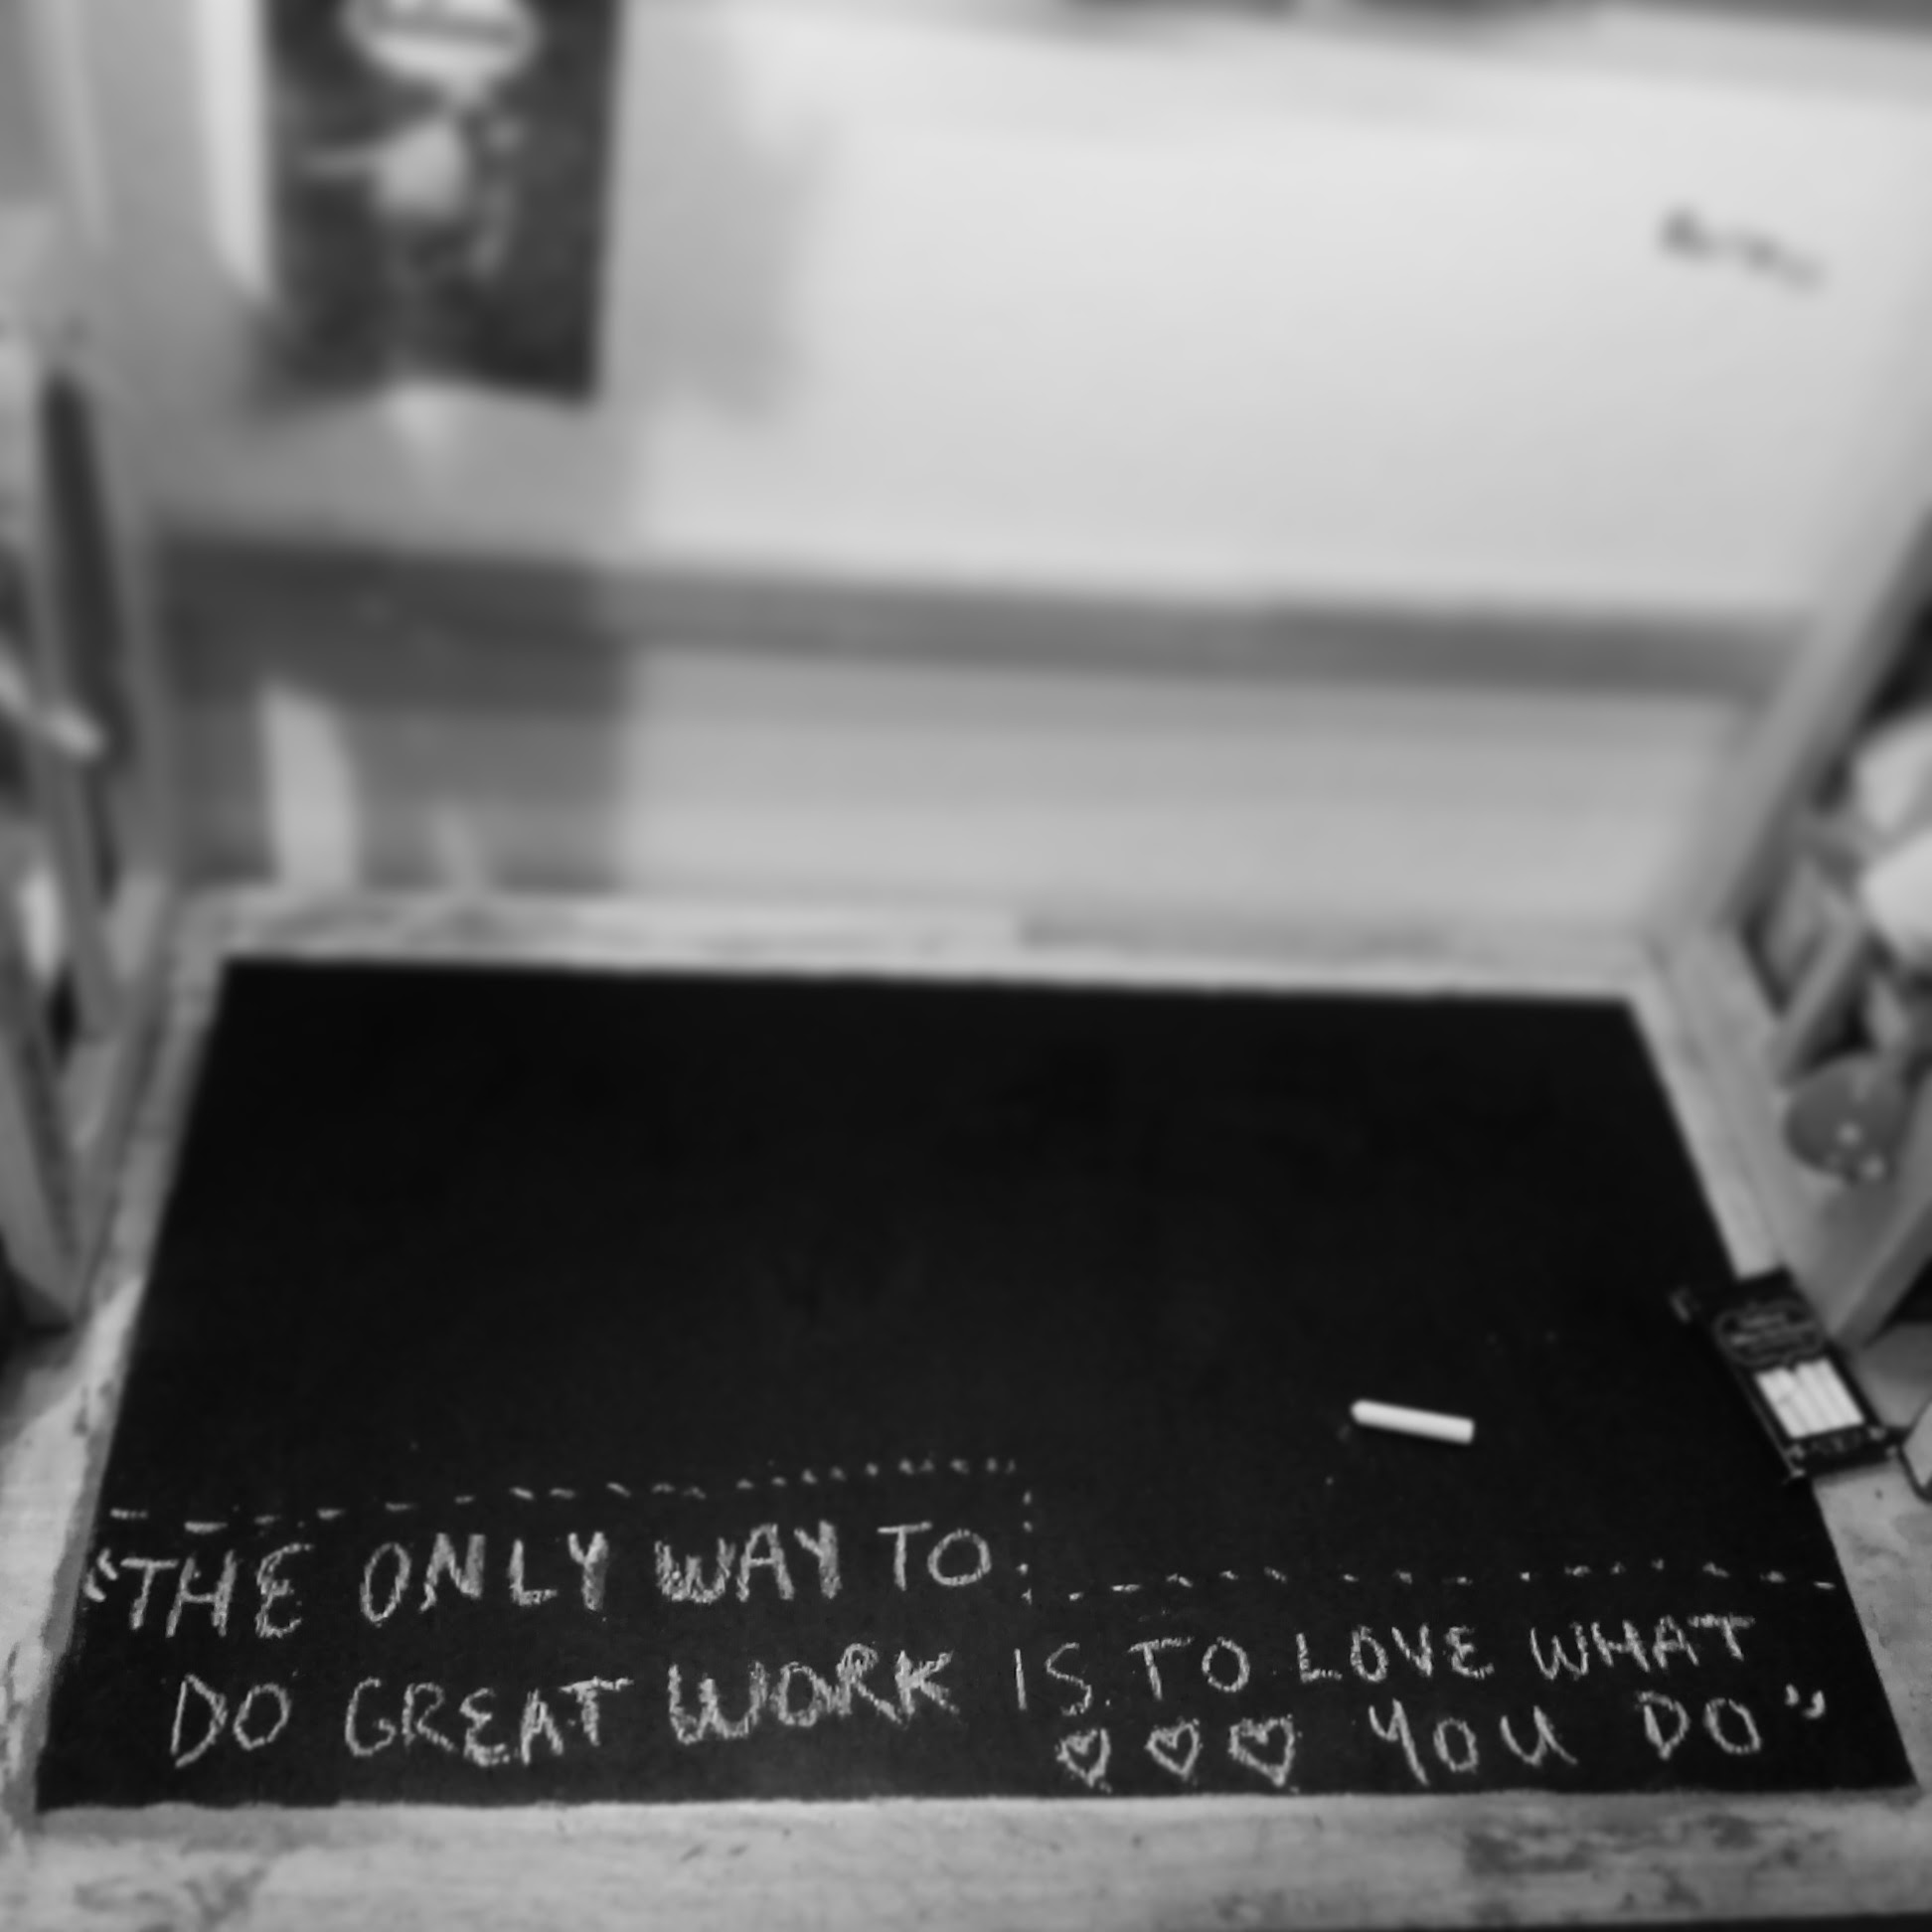 "THE ONLY WAY TO
DO GREAT WORK IS TO LOVE WHAT
♡ ♡ ♡ YOU DO"